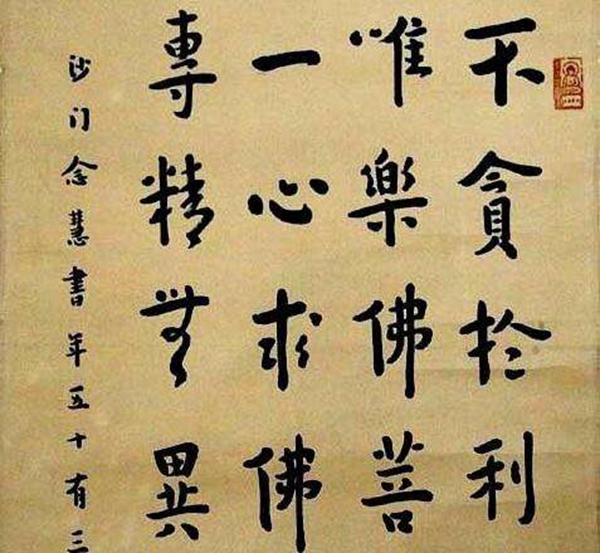 不貪於利
唯樂佛菩
一心求佛
專精無異
沙门念慧書年五十有三